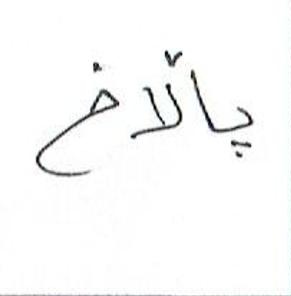 پاڵاخ